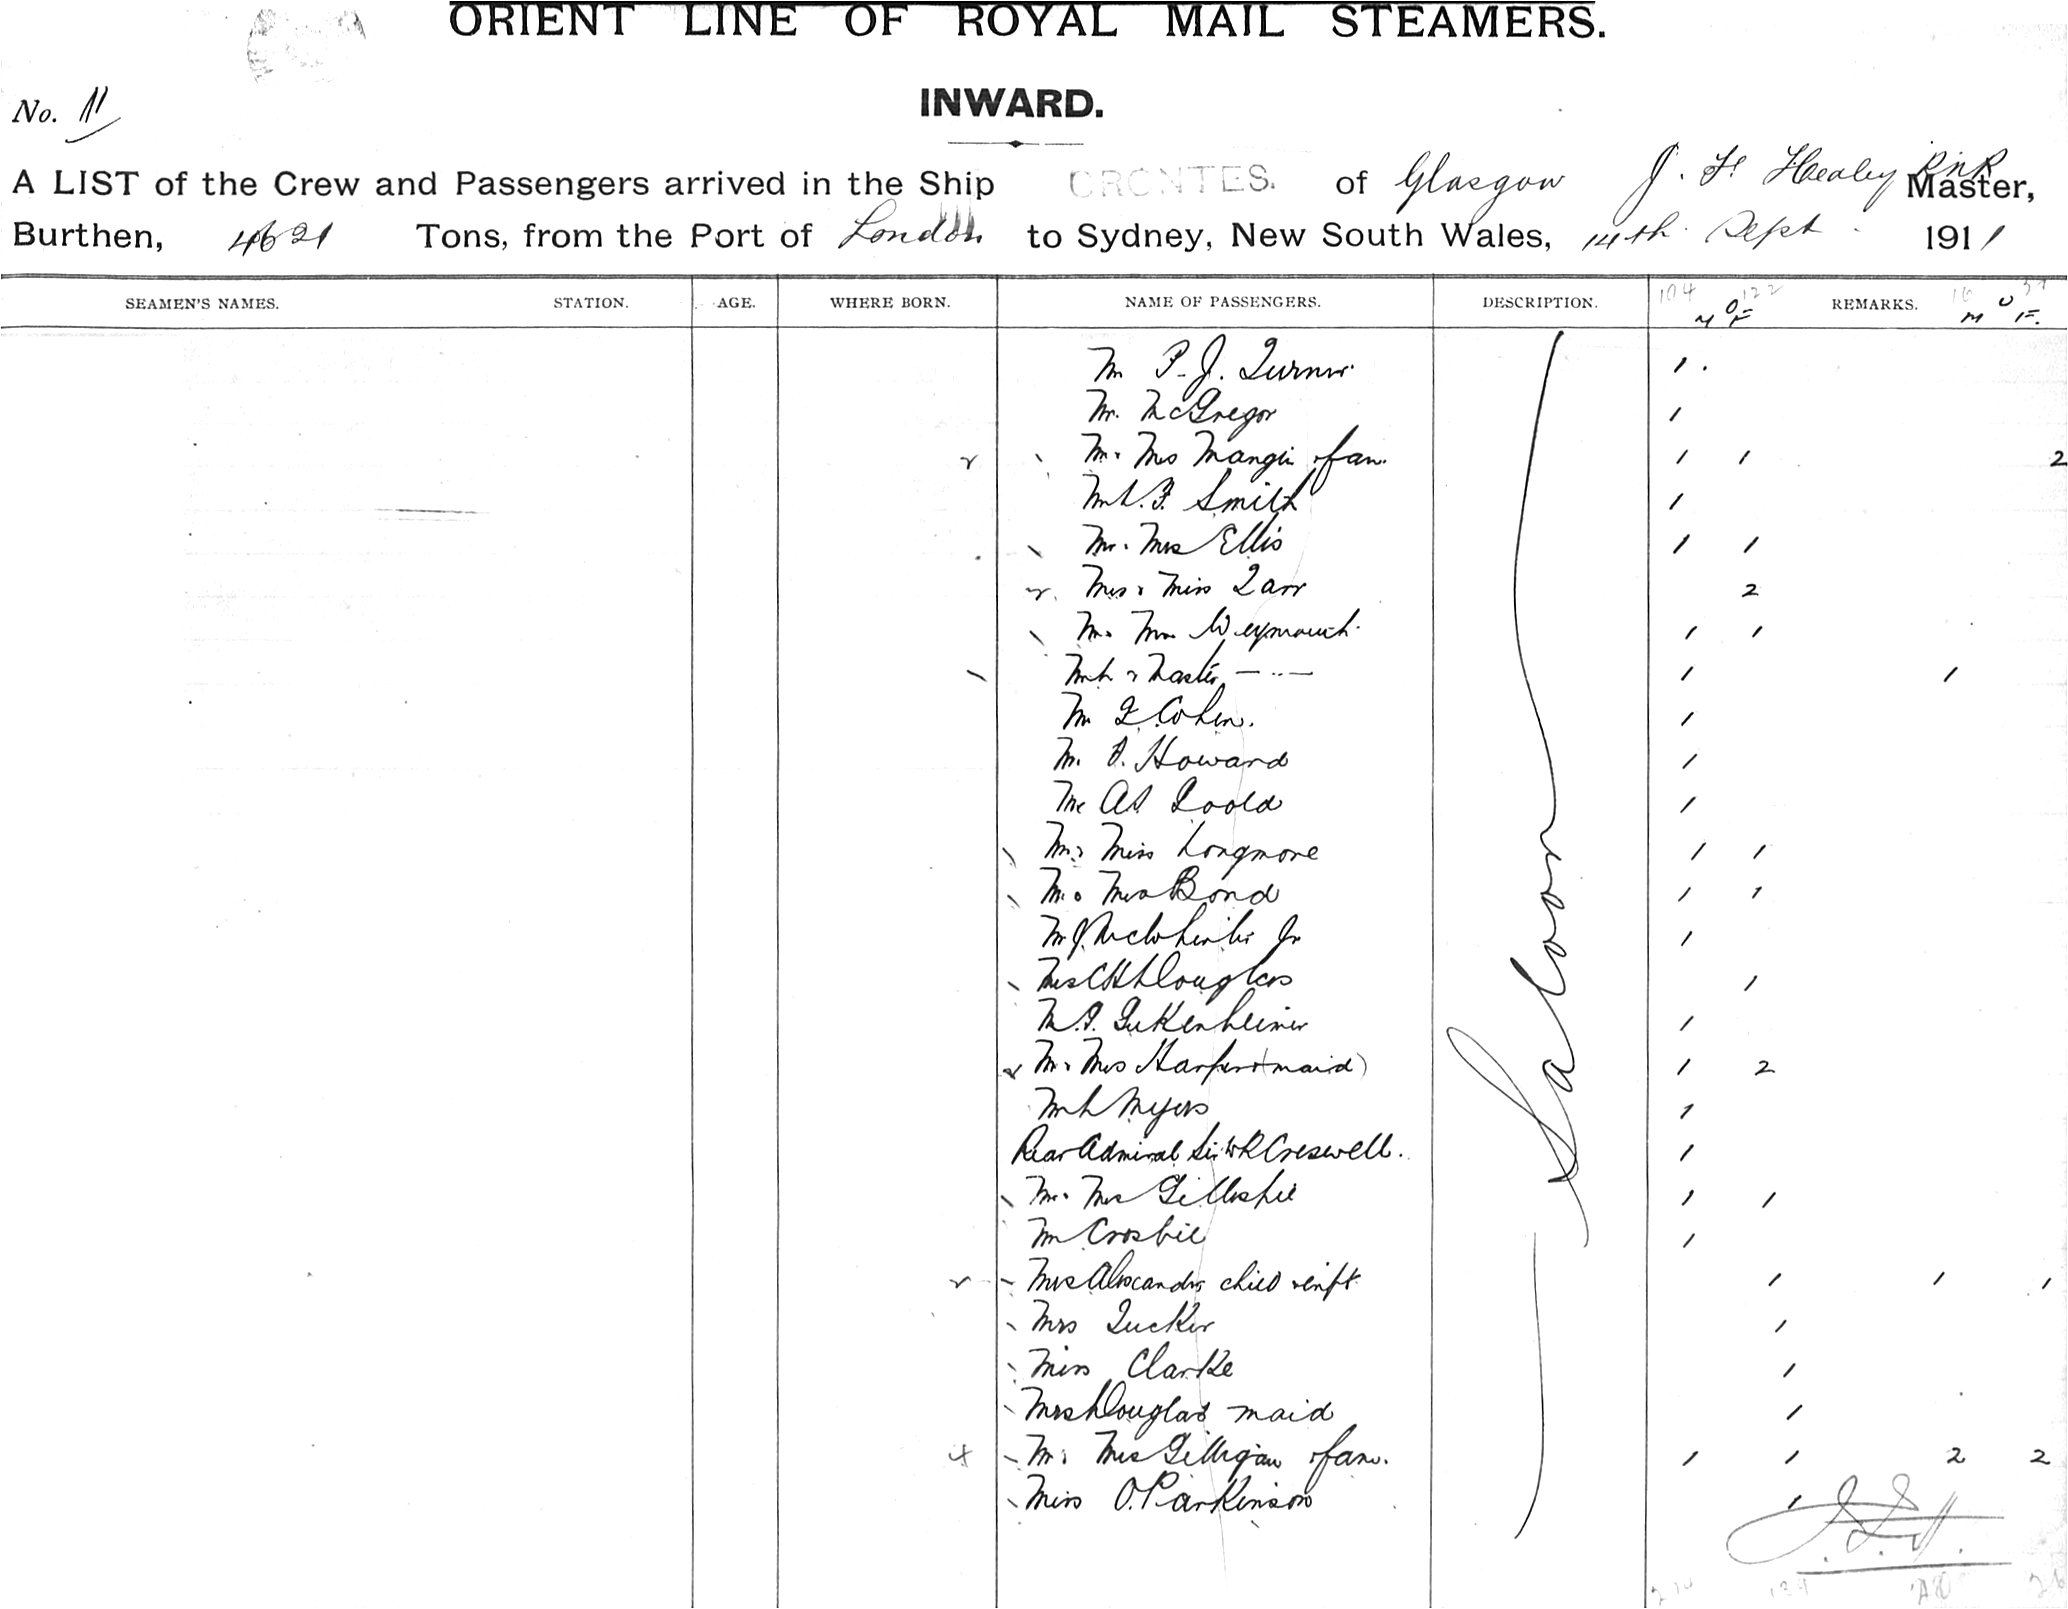 ORIENT LINE OF ROYAL MAIL STEAMERS.
INWARD.
No. 11
A LIST of the Crew and Passengers arrived in the Ship ORONTES. of Glasgow J. F. Healey RNR Master,
Burthen, 4621 Tons, from the Port of London to Sydney, New South Wales, 14th Sept. 1911
SEAMEN'S NAMES. STATION. AGE. WHERE BORN. NAME OF PASSENGERS. DESCRIPTION. REMARKS.
M O F M U F.
Saloon
Mr P. J. Turner 1
Mr. McGregor 1
Mr. Mrs fam. 1 1 2
Smith 1
Mr. Mrs Ellis 1 1
Mrs & Miss Tarr 2
Mr. Mrs Weymouth 1 1
& Master — " — 1 1
Mr Cohen. 1
Mr. Howard 1
Mr Toold 1
Mr & Miss Longmore 1 1
Mr. & Mrs Bond 1 1
Mr J. McWhirter Jr 1
Mrs Douglas 1
Mr 1
Mr. Mrs Harper (maid) 1 2
Myers 1
Rear Admiral Sir W R Creswell. 1
Mr. Mrs Gillespie 1 1
Mr Crosbie 1
Mrs Alexander child & inft 1 1 1
Mrs Tucker 1
Miss Clarke 1
Mrs Douglas maid 1
Mr & Mrs Gilligan & fam. 1 1 2 2
Miss O. Parkinson 1